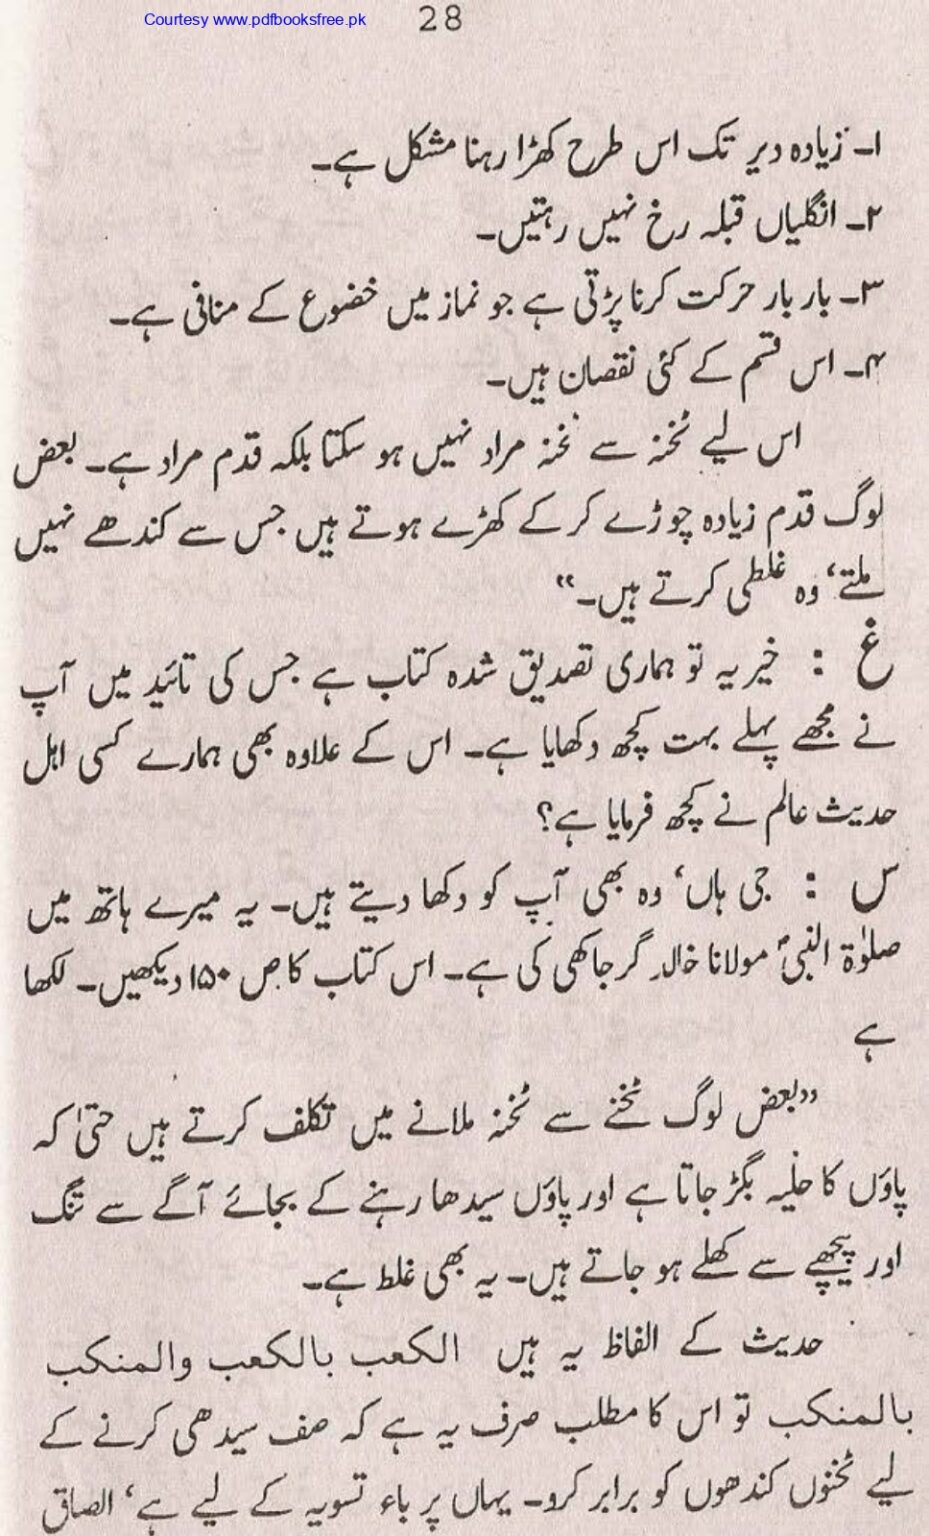 Courtesy www.pdfbooksfree.pk
28
۱۔ زیادہ دیر تک اس طرح کھڑا رہنا مشکل ہے۔
۲۔ انگلیاں قبلہ رخ نہیں رہتیں۔
۳۔ بار بار حرکت کرنا پڑتی ہے جو نماز میں خضوع کے منافی ہے۔
۴۔ اس قسم کے کئی نقصان ہیں۔
اس لیے ٹخنہ سے ٹخنہ مراد نہیں ہو سکتا بلکہ قدم مراد ہے۔ بعض
لوگ قدم زیادہ چوڑے کر کے کھڑے ہوتے ہیں جس سے کندھے نہیں
ملتے‘ وہ غلطی کرتے ہیں۔“
غ : خیر یہ تو ہماری تصدیق شدہ کتاب ہے جس کی تائید میں آپ
نے مجھے پہلے بہت کچھ دکھایا ہے۔ اس کے علاوہ بھی ہمارے کسی اہل
حدیث عالم نے کچھ فرمایا ہے؟
س : جی ہاں‘ وہ بھی آپ کو دکھا دیتے ہیں۔ یہ میرے ہاتھ میں
صلوٰۃ النبیؐ مولانا خالد گرجاکھی کی ہے۔ اس کتاب کا ص ۱۵۰ دیکھیں۔ لکھا
ہے
”بعض لوگ ٹخنے سے ٹخنہ ملانے میں تکلف کرتے ہیں حتیٰ کہ
پاؤں کا حلیہ بگڑ جاتا ہے اور پاؤں سیدھا رہنے کے بجائے آگے سے تنگ
اور پیچھے سے کھلے ہو جاتے ہیں۔ یہ بھی غلط ہے۔
حدیث کے الفاظ یہ ہیں الکعب بالکعب والمنکب
بالمنکب تو اس کا مطلب صرف یہ ہے کہ صف سیدھی کرنے کے
لیے ٹخنوں کندھوں کو برابر کرو۔ یہاں پر باء تسویہ کے لیے ہے‘ الصاق